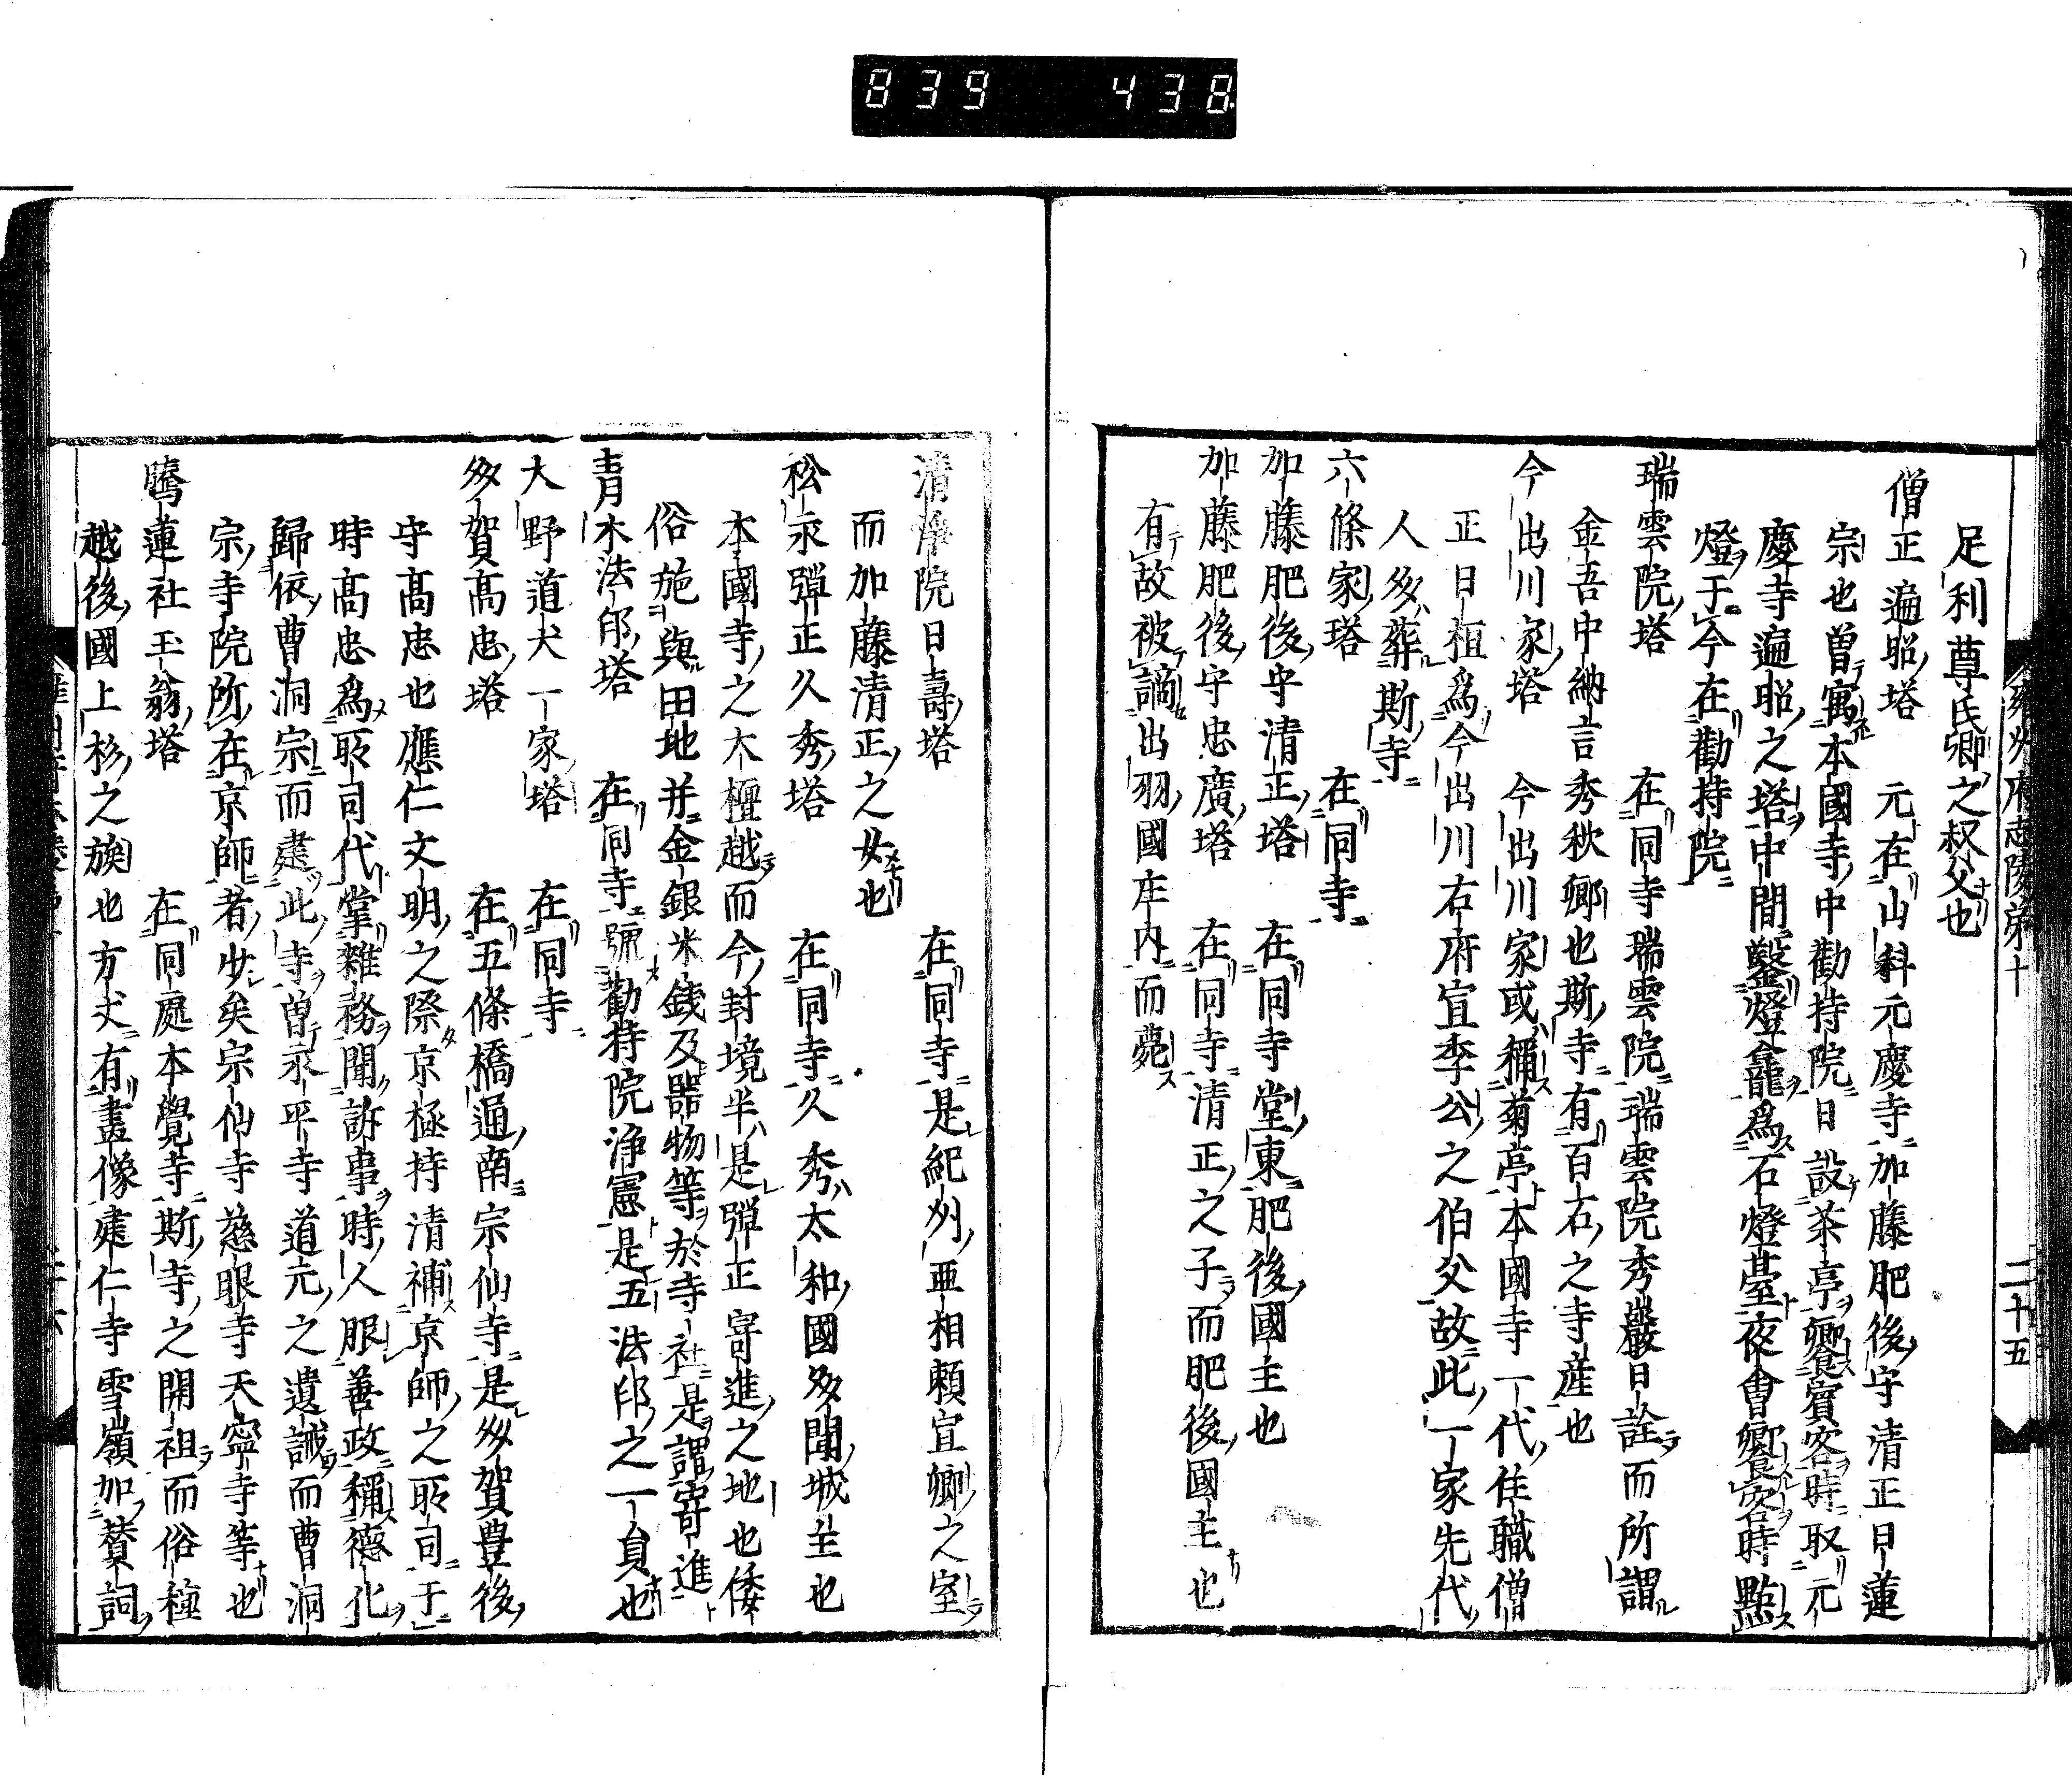 839 438
雍州府志陵第十 二十五
足利尊氏卿之叔父也
僧正遍昭塔 元在山科元慶寺加藤肥後守清正日蓮
宗也曽寓本國寺中勸持院日設茶亭饗賓客時取元
慶寺遍昭之塔中間鑿燈龕爲石燈臺夜會饗客時點
燈于今在勸持院
瑞雲院塔 在同寺瑞雲院瑞雲院秀巖日詮而所謂
金吾中納言秀秋卿也斯寺有百石之寺産也
今出川家塔 今出川家或稱菊亭本國寺一代住職僧
正日禎爲今出川右府宣季公之伯父故此一家先代
人多葬斯寺
六條家塔 在同寺
加藤肥後守清正塔 在同寺堂東肥後國主也
加藤肥後守忠廣塔 在同寺清正之子而肥後國主也
有故被謫出羽國庄内而薨
清浄院日壽塔 在同寺是紀州亜相頼宣卿之室
而加藤清正之女也
松永弾正久秀塔 在同寺久秀太和國多聞城主也
本國寺之大檀越而今封境半是弾正寄進之地也倭
俗施與田地并金銀米銭及器物等於寺社是謂寄進
青木法印塔 在同寺號勸持院浄憲是五法印之一員也
大野道犬一家塔 在同寺
多賀高忠塔 在五條橋通南宗仙寺是多賀豊後
守高忠也應仁文明之際京極持清補京師之所司于
時高忠爲所司代掌雜務聞訴事時人服善政稱德化
歸依曹洞宗而建此寺曽永平寺道元之遺誡而曹洞
宗寺院所在京師者少矣宗仙寺慈眼寺天寧寺等也
騰蓮社玉翁塔 在同處本覺寺斯寺之開祖而俗種
越後國上杉之族也方丈有畫像建仁寺雪嶺加賛詞